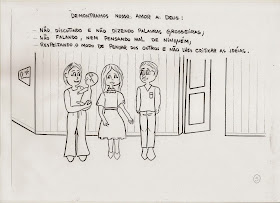 DEMONSTRAMOS NOSSO AMOR A DEUS:
- NÃO DISCUTINDO E NÃO DIZENDO PALAVRAS GROSSEIRAS;
- NÃO FALANDO, NEM PENSANDO MAL DE NINGUÉM;
- RESPEITANDO O MODO DE PENSAR DOS OUTROS E NÃO LHES CRITICAR AS IDÉIAS.